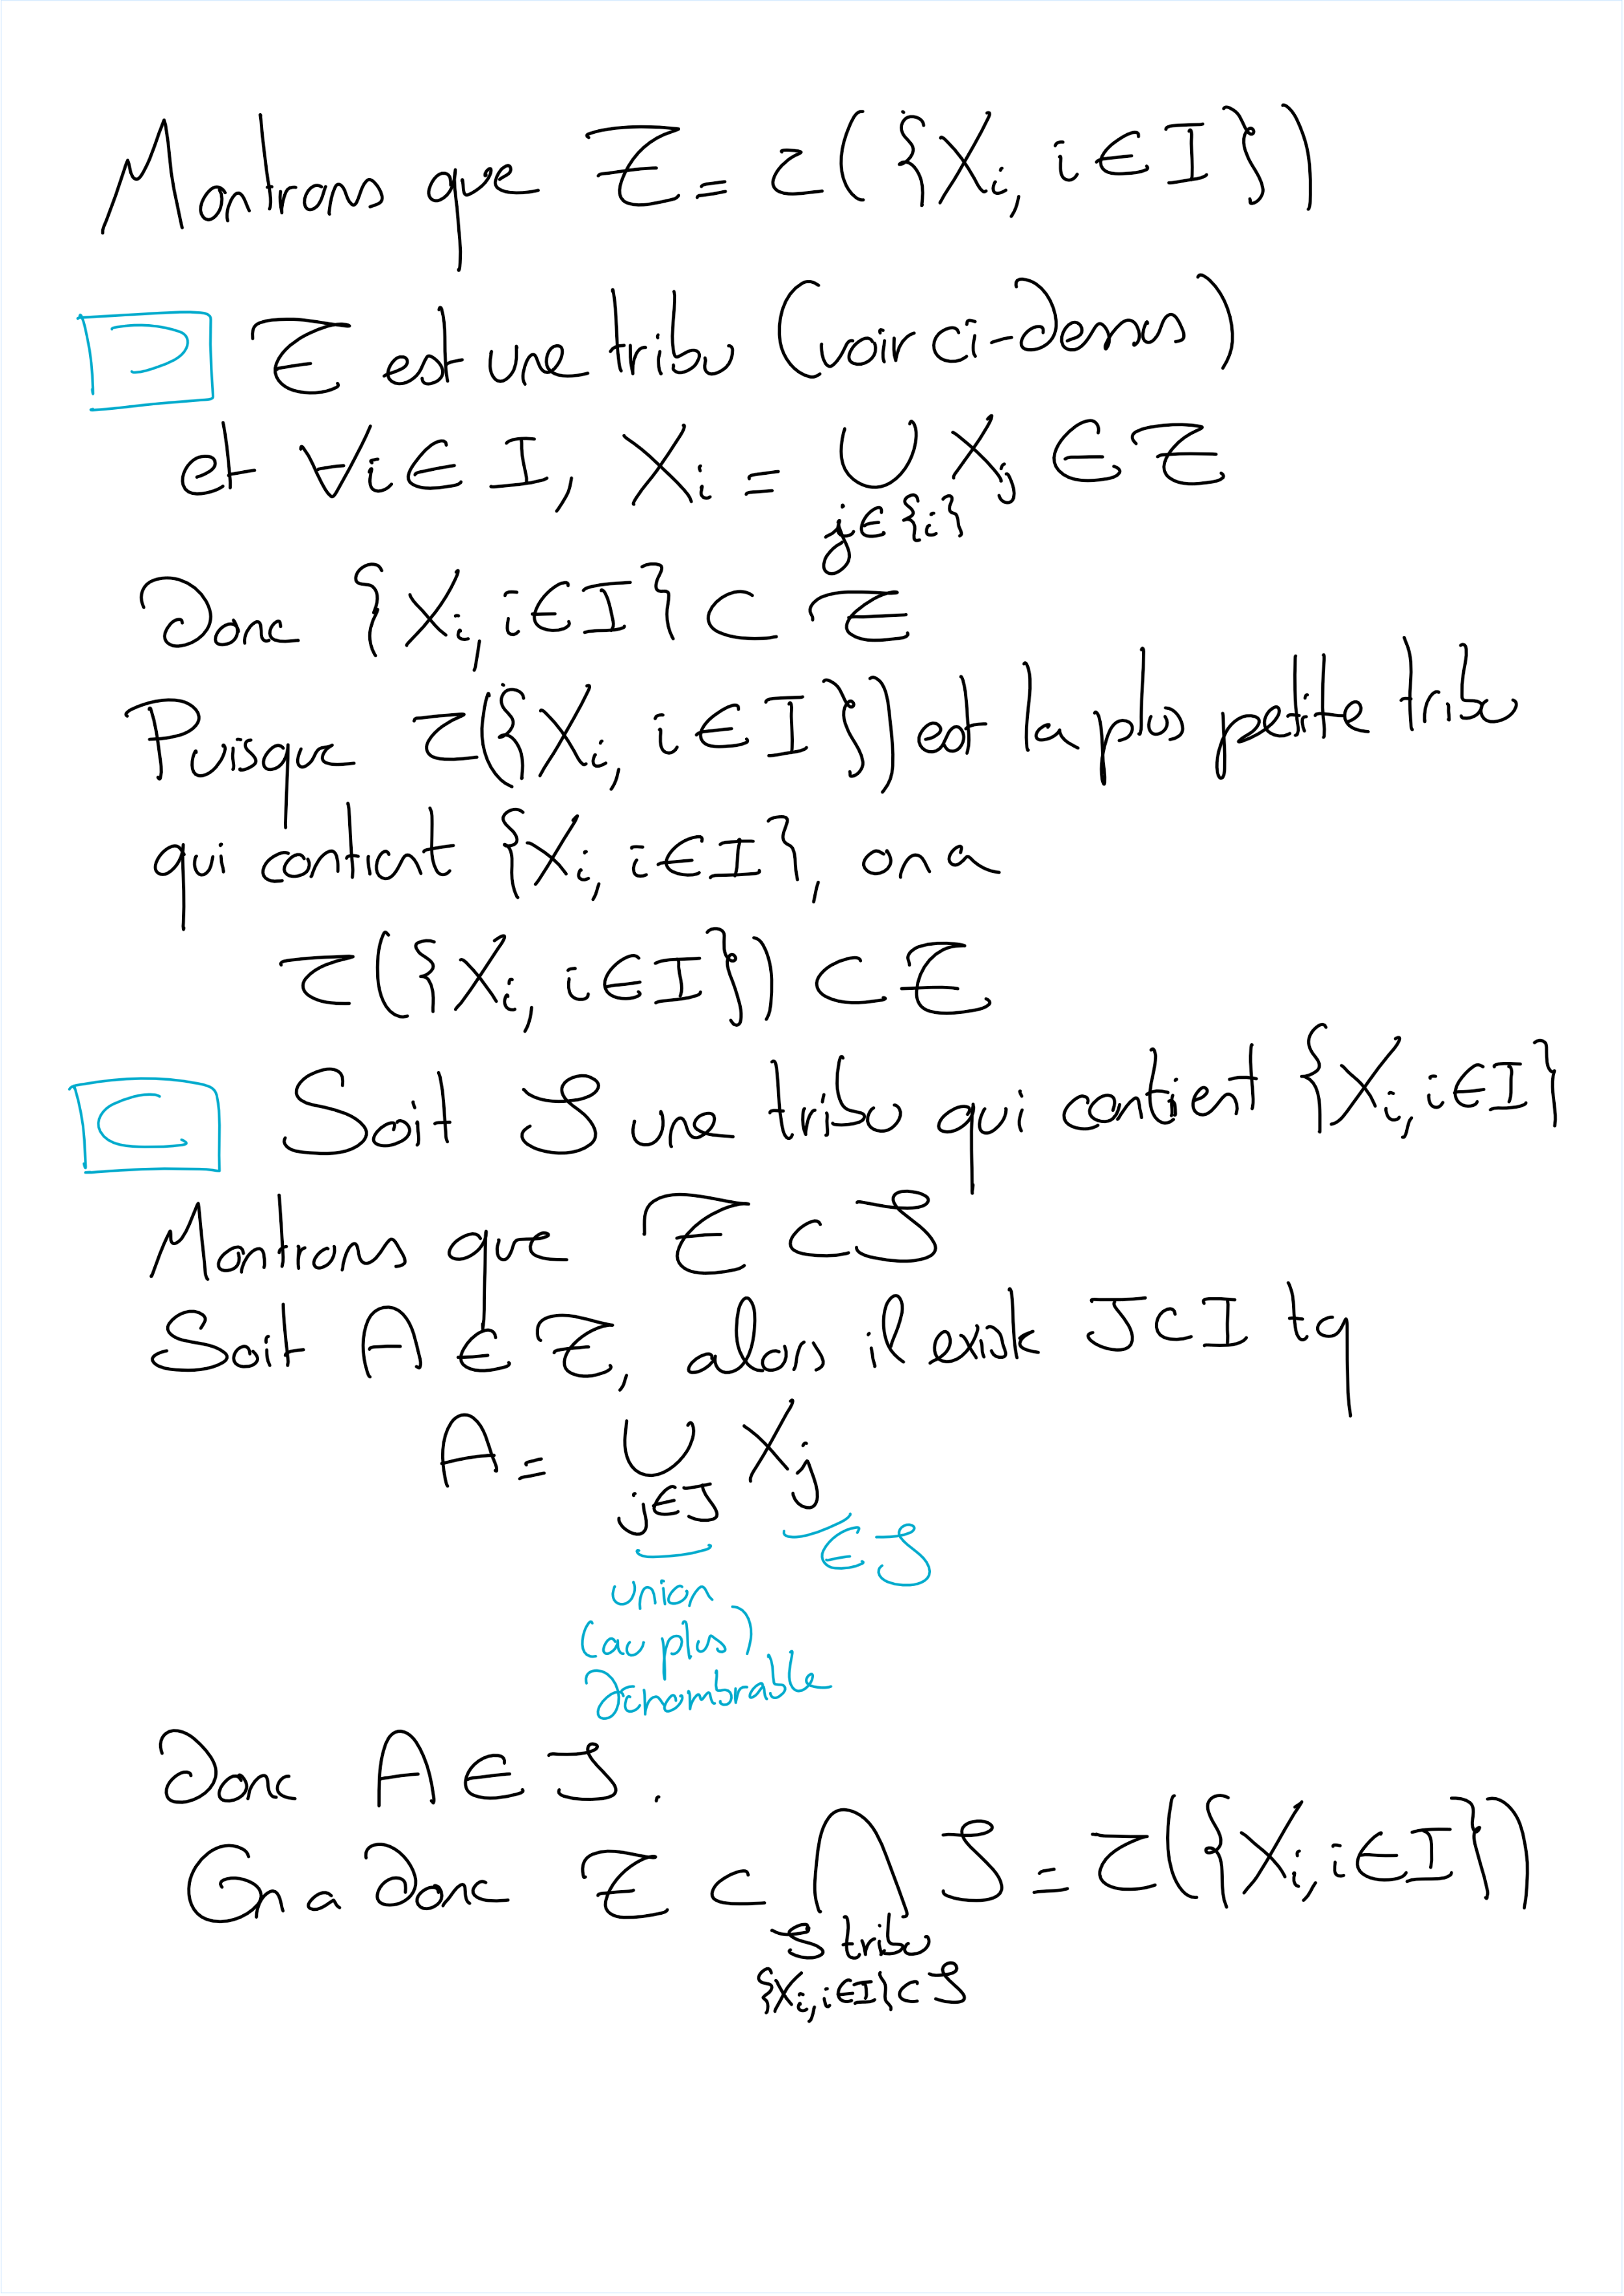 Montrons que Ƶ = τ({Xi, i∈I})
⊃ Ƶ est une tribu (voir ci-dessus)
et ∀i∈I, Xi = ∪ Xj ∈ Ƶ
j∈{i}
Donc {Xi, i∈I} ⊂ Ƶ
Puisque τ({Xi, i∈I}) est la plus petite tribu
qui contient {Xi, i∈I}, on a
τ({Xi, i∈I}) ⊂ Ƶ
⊂ Soit 𝒮 une tribu qui contient {Xi, i∈I}
Montrons que Ƶ ⊂ 𝒮
Soit A ∈ Ƶ, alors il existe J⊂I tq
A = ∪ Xj
j∈J
∈ 𝒮
union
(au plus)
dénombrable
Donc A ∈ 𝒮.
On a donc Ƶ ⊂ ∩ 𝒮 = τ({Xi, i∈I})
𝒮 tribu
{Xi, i∈I} ⊂ 𝒮